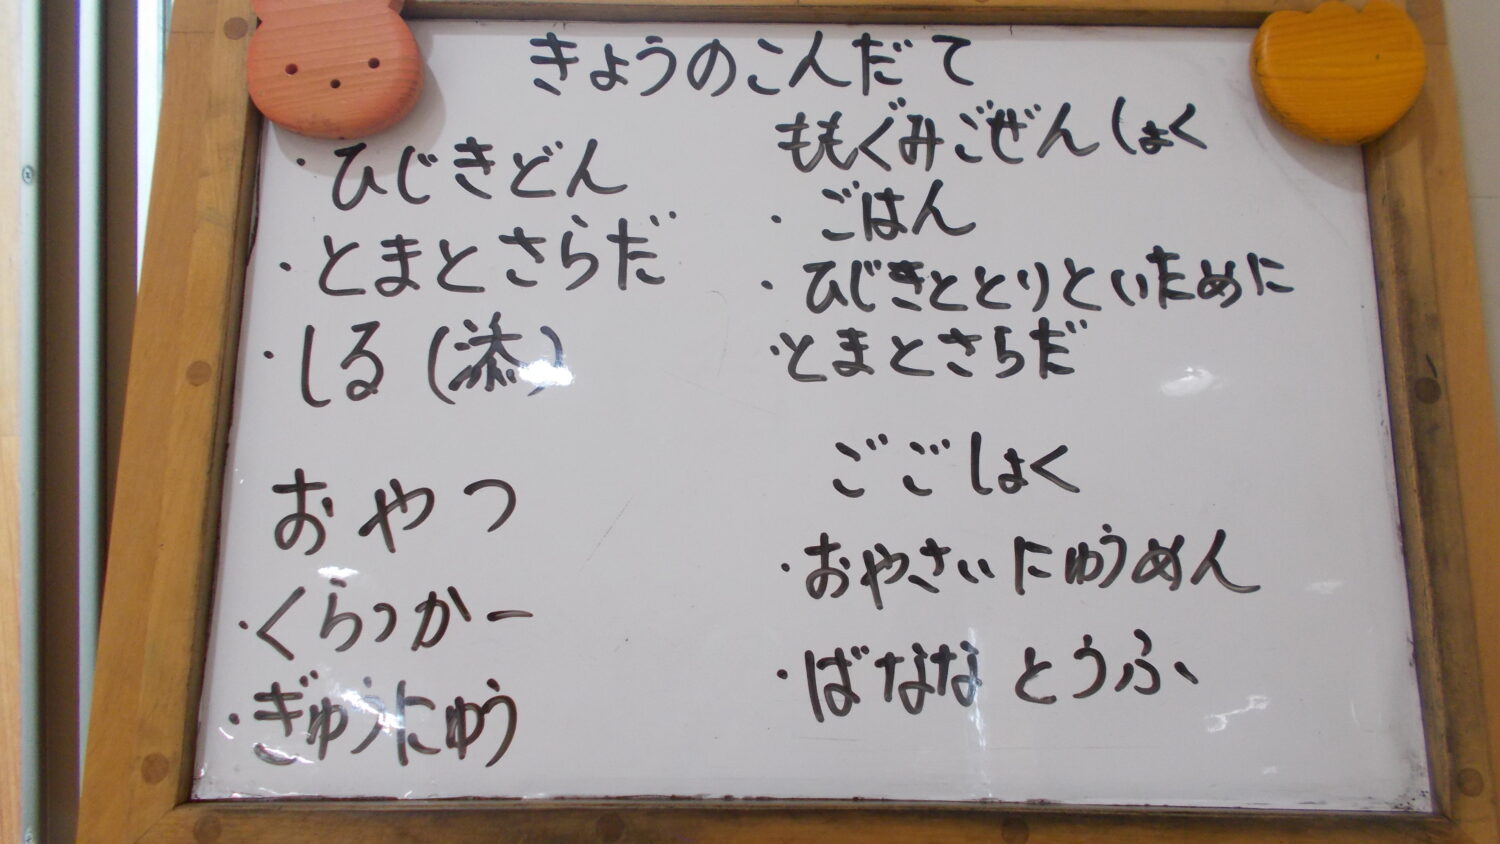 きょうのこんだて
・ひじきどん
・とまとさらだ
・しる(添)
おやつ
・くらっかー
・ぎゅうにゅう
ももぐみごぜんしょく
・ごはん
・ひじきととりといために
・とまとさらだ
ごごしょく
・おやさいにゅうめん
・ばななとうふ